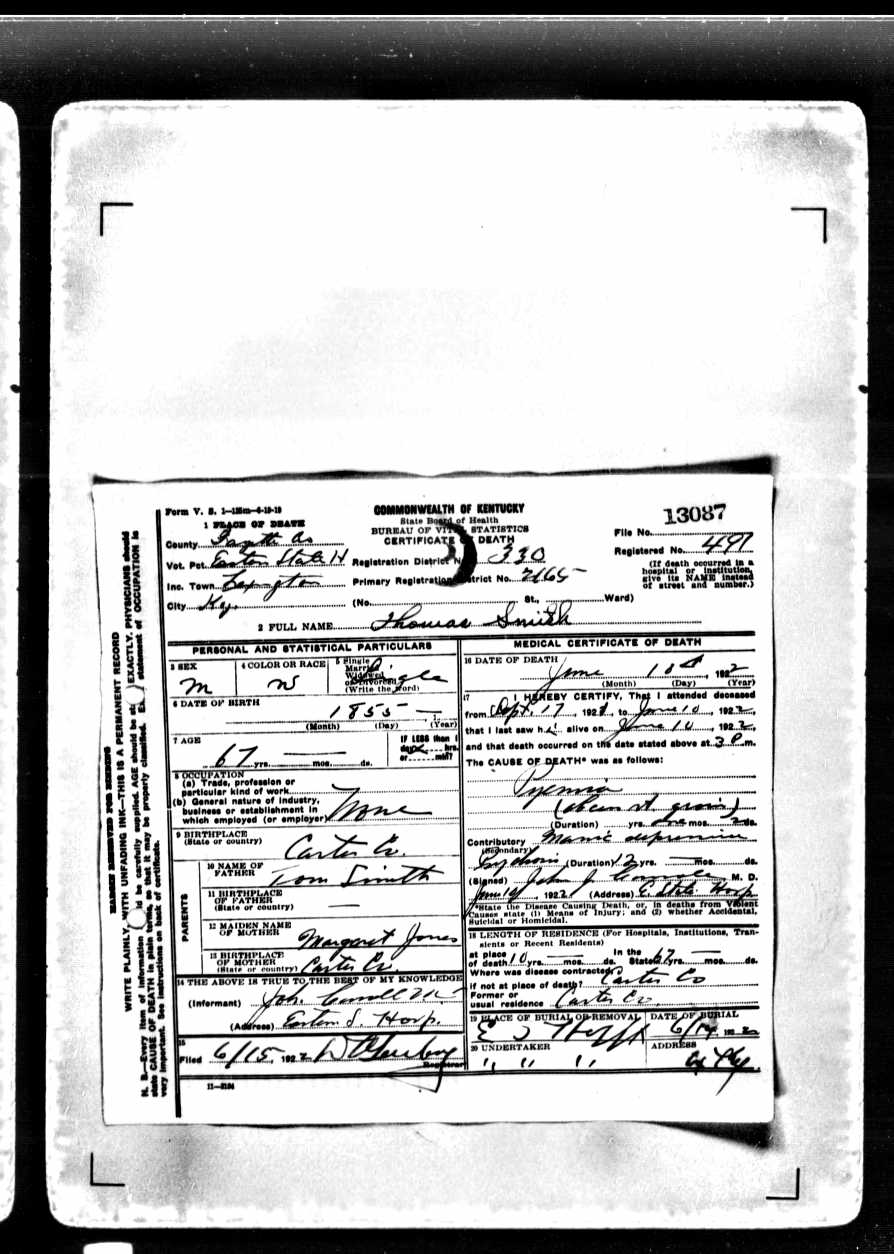 Form V. S. 1—125m—6-19-19
COMMONWEALTH OF KENTUCKY
State Board of Health
BUREAU OF VITAL STATISTICS
CERTIFICATE OF DEATH
13087
File No.
Registered No. 497
(If death occurred in a hospital or institution, give its NAME instead of street and number.)
1 PLACE OF DEATH
County
Vot. Pct. State H
Inc. Town Lexington
City Ky.
Registration District No. 330
Primary Registration District No. 2165
(No. St., Ward)
2 FULL NAME Thomas Smith
PERSONAL AND STATISTICAL PARTICULARS
3 SEX
M
4 COLOR OR RACE
W
5 Single
Married
Widowed
or Divorced
(Write the word)
Single
6 DATE OF BIRTH
1855 —
(Month) (Day) (Year)
7 AGE
67 yrs. mos. ds.
IF LESS than 1
day hrs.
or min?
8 OCCUPATION
(a) Trade, profession or
particular kind of work
(b) General nature of industry,
business or establishment in
which employed (or employer)
None
9 BIRTHPLACE
(State or country)
Carter Co.
PARENTS
10 NAME OF
FATHER
Tom Smith
11 BIRTHPLACE
OF FATHER
(State or country)
—
12 MAIDEN NAME
OF MOTHER
Margaret Jones
13 BIRTHPLACE
OF MOTHER
(State or country)
Carter Co.
14 THE ABOVE IS TRUE TO THE BEST OF MY KNOWLEDGE
(Informant)
(Address) Eastern S. Hosp.
15
Filed 6/15, 1922
Registrar
11—3184
MEDICAL CERTIFICATE OF DEATH
16 DATE OF DEATH
June 10th, 1922
(Month) (Day) (Year)
17 I HEREBY CERTIFY, That I attended deceased
from Sept. 17, 1921, to June 10, 1922,
that I last saw him alive on June 10, 1922,
and that death occurred on the date stated above at 3 P.m.
The CAUSE OF DEATH* was as follows:
Pyemia
(Duration) yrs. one mos. 2 ds.
Contributory Manic depressive
(Secondary)
Psychosis (Duration) 12 yrs. mos. ds.
(Signed) John J. M. D.
June 10, 1922 (Address) E. State Hosp
*State the Disease Causing Death, or, in deaths from Violent
Causes state (1) Means of Injury; and (2) whether Accidental,
Suicidal or Homicidal.
18 LENGTH OF RESIDENCE (For Hospitals, Institutions, Transients or Recent Residents)
at place of death 10 yrs. mos. ds. In the State 67 yrs. mos. ds.
Where was disease contracted,
if not at place of death? Carter Co
Former or
usual residence Carter Co
19 PLACE OF BURIAL OR REMOVAL
E S Hosp
DATE OF BURIAL
20 UNDERTAKER
" " "
ADDRESS
MARGIN RESERVED FOR BINDING
WRITE PLAINLY, WITH UNFADING INK—THIS IS A PERMANENT RECORD
N. B.—Every item of information should be carefully supplied. AGE should be stated EXACTLY. PHYSICIANS should
state CAUSE OF DEATH in plain terms, so that it may be properly classified. Exact statement of OCCUPATION is
very important. See instructions on back of certificate.